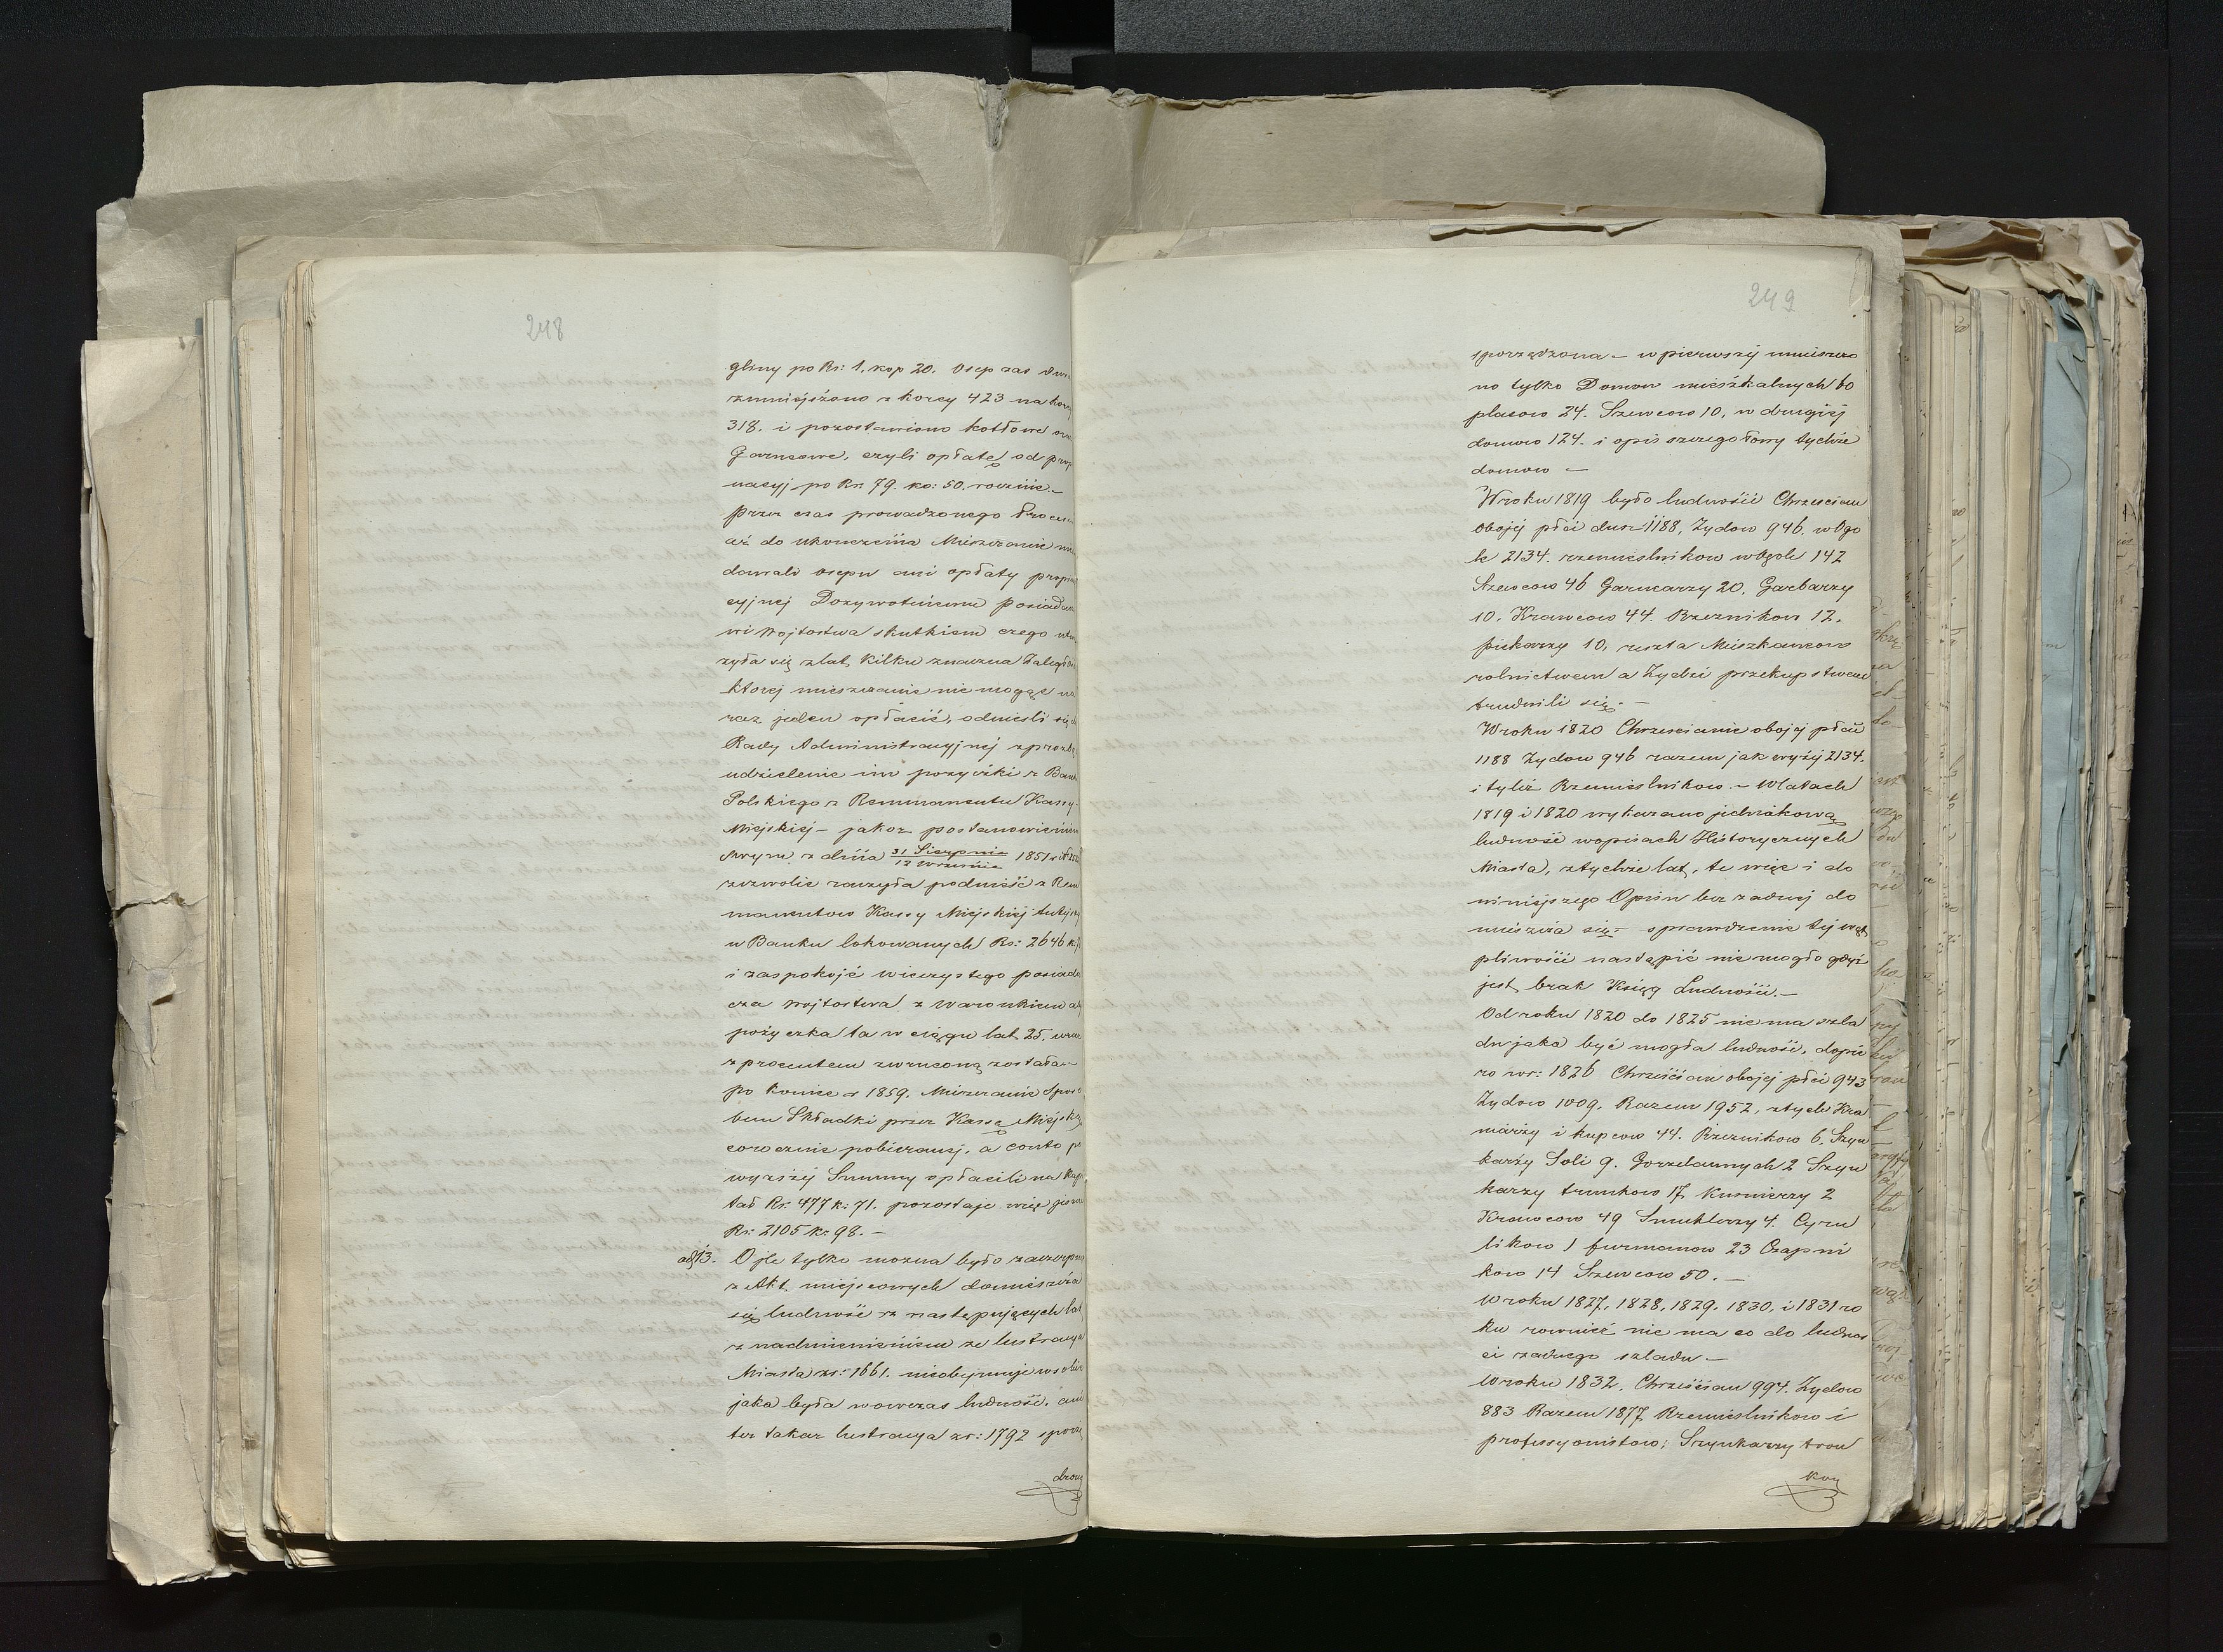 248
gliny po Rs: 1. kop 20. Osep zas
zmniejszono z korcy 423 na
318. i pozostawiono kotłowe
Garncowe, czyli opłatę od
nacyj po Rs. 79. ko: 50. rocznie.-
Przez czas prowadzonego
aż do ukończenia Mieszczanie
dawali osepu ani opłaty
cyjnej Dozywotniemu
wi Wojtostwa skutkiem czego
rzyła się z lat kilku znaczna
ktorej mieszczanie nie mogąc na
raz jeden opłacić, odnieśli się
Rady Administracyjnej z prozbą
udzielenie im pozyczki z
Polskiego z Remmanentu Kassy
Miejskiej - jakoz postanowieniem
swym z dnia 31 Sierpnia / 12 Wrzesnia 1851
zezwolic raczyła podnieść z
manentow Kassy Miejskiej
w Banku lokowanych Rs: 2646
i zaspokoić wieczystego
cza Wojtostwa z warunkiem
pożyczka ta w ciągu lat 25.
z procentem zwruconą została -
po koniec r 1859. Mieszczanie
bem Składki przez Kassę
corocznie pobieranej, a conto
wyzszej Summy opłacili na
tał Rs. 477 k. 71. pozostaje więc
Rs. 2105 k. 98. -
ad 13. O jle tylko mozna było
z Akt miejscowych domieszcza
się ludność z następujących lat
z nadmienieniem ze lustracya
Miasta z r: 1661. nieobejmuje
jaka była wowczas ludność, ani
tez takaz lustracya z r: 1792
249
sporządzona - w pierwszej umieszczo
no tylko Domow mieszkalnych 60
placow 24. Szewcow 10, w drugiej
domow 124. i opis szczegołowy tychże
domow -
W roku 1819 było ludności Chrzescian
obojej płci dusz 1188, Zydow 946. w Ogo
le 2134. rzemieslnikow w Ogole 142
Szewcow 46 Garncarzy 20, Garbarzy
10. Krawcow 44. Rzeznikow 12.
piekarzy 10, reszta Mieszkancow
rolnictwem a Zydzi przekupstwem
trudnili się. -
W roku 1820 Chrzescianie obojej płci
1188 Zydow 946 razem jak wyżej 2134.
i tyleż Rzemieslnikow. - W latach
1819 i 1820 wykazano jednakową
ludność w opisach Historycznych
Miasta, z tychże lat, te więc i do
niniejszego Opisu bez zadnej do
mieszcza się - sprawdzenie tej wąt
pliwości nastąpić nie mogło gdyż
jest brak Ksiąg Ludności. -
Od roku 1820 do 1825 nie ma szla
du jaka być mogła ludność, dopie
ro w r: 1826 Chrześcian obojej płci 943
Zydow 1009. Razem 1952, z tych Kra
marzy i kupcow 44. Rzeznikow 6, Szyn
karzy Soli 9. Gorzelannych 2 Szyn
karzy trunkow 17 Kusnierzy 2
Krawcow 49 Smuklerzy 4. Cyru
likow 1 furmanow 23 Czapni
kow 14 Szewcow 50. -
W roku 1827, 1828. 1829. 1830, i 1831 ro
ku rownież nie ma co do ludnos
ci zadnego szladu -
W roku 1832. Chrześcian 994. Zydow
883 Razem 1877 Rzemieslnikow i
professyonistow; Szynkarzy trun
kow